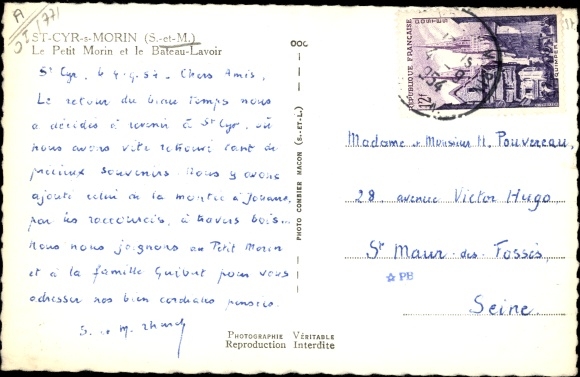 A
OI 771
ST-CYR-s-MORIN (S.-et-M.)
Le Petit Morin et le Bateau-Lavoir
St Cyr, le 4.9.54 - Chers Amis,
Le retour du beau temps nous
a décidés à revenir à St Cyr, où
nous avons vite retrouvé tant de
précieux souvenirs. Nous y avons
ajouté celui de la montée à Jouarre,
par les raccourcis, à travers bois...
Nous nous joignons au Petit Morin
et à la famille Guibert pour vous
adresser nos bien cordiales pensées.
S. et M.
PHOTOGRAPHIE VÉRITABLE
Reproduction Interdite
PHOTO COMBIER MACON (S.-ET-L.)
RÉPUBLIQUE FRANÇAISE
POSTES
12f
9
1954
Madame et Monsieur H. Pouvereau,
28, avenue Victor Hugo
St Maur-des-Fossés,
PB
Seine.